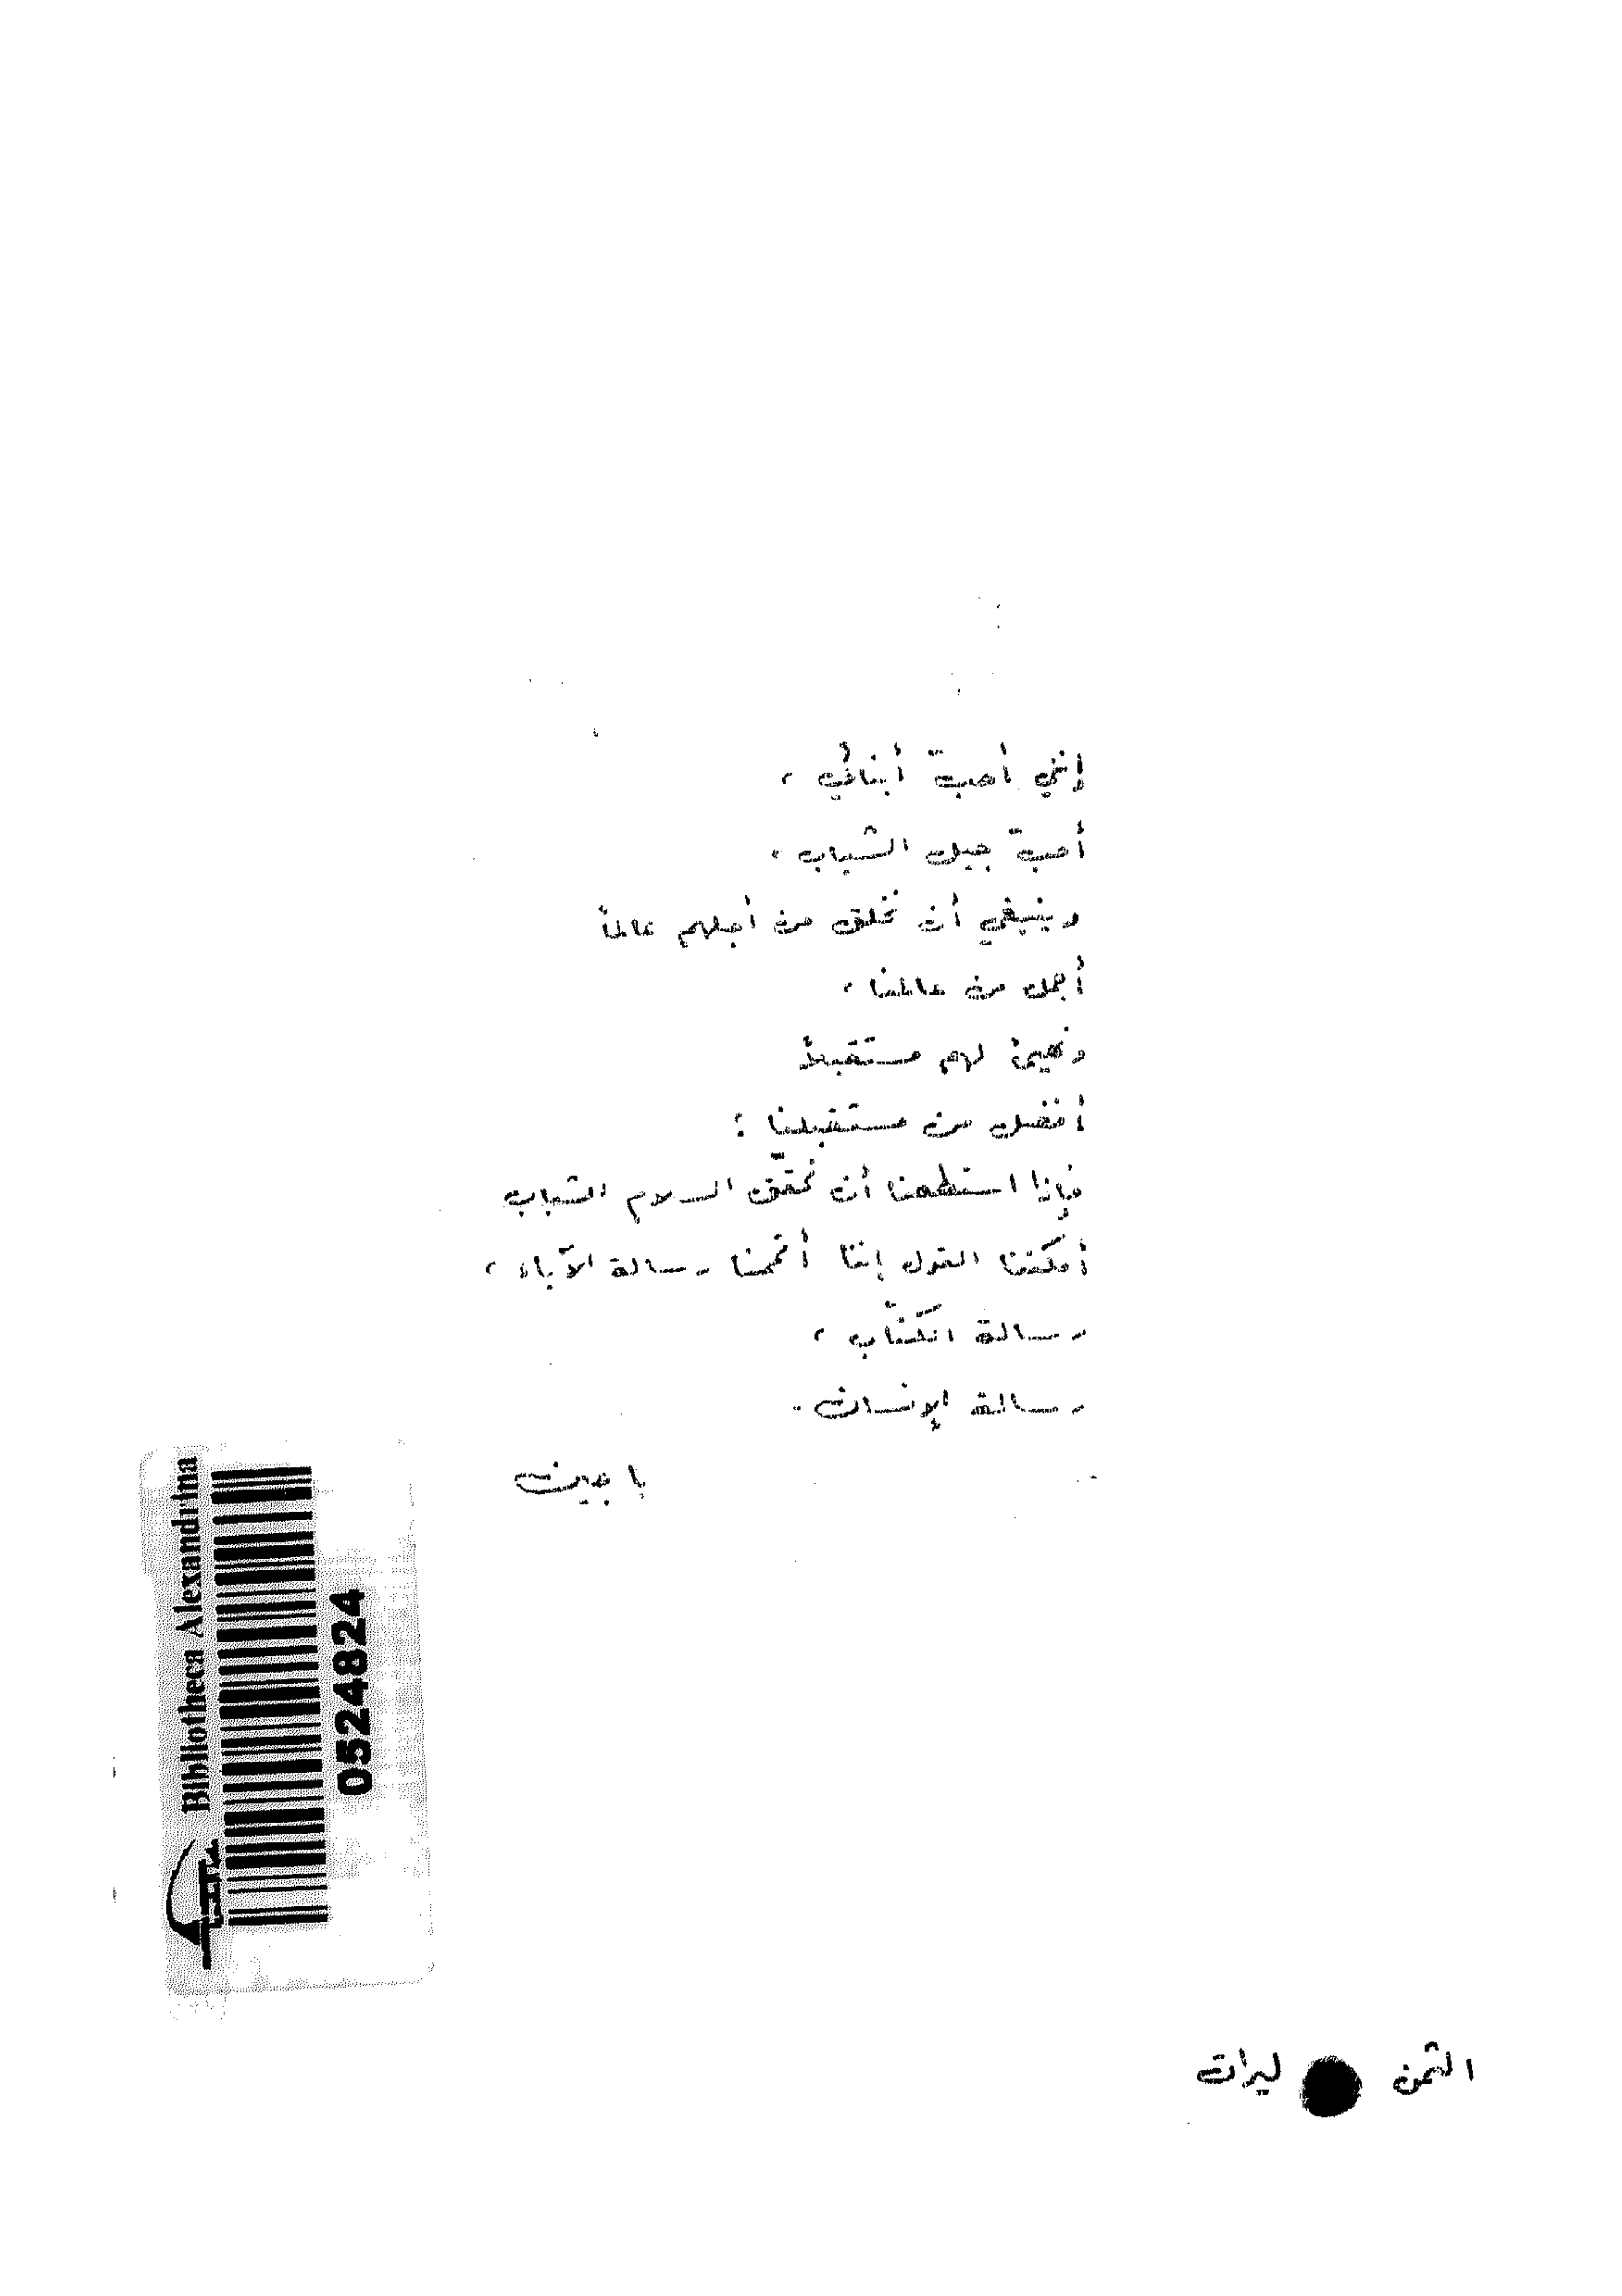 إنني أحبّ أبنائي ،
أحبّ جيل الشباب ،
وينبغي أن نخلق من أجلهم عالماً
أجمل من عالمنا ،
ونهيئ لهم مستقبلاً
أفضل من مستقبلنا :
فإذا استطعنا أن نحقّق السلام للشباب
أمكننا القول إننا أتممنا رسالة الآباء ،
رسالة الكتّاب ،
رسالة الإنسان .
باجيت
Bibliotheca Alexandrina
0524824
الثمن ليرات